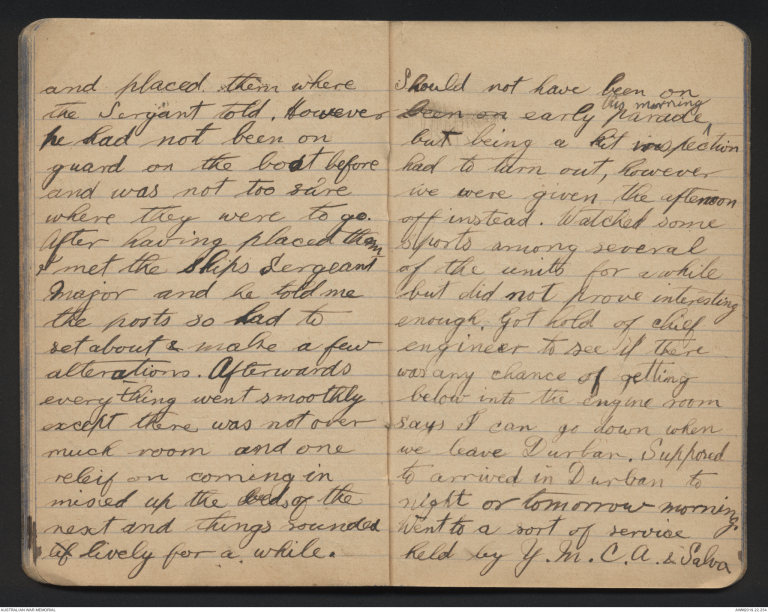 and placed them where
the Serjant told. However
he had not been on
guard on the boat before
and was not too sure
where they were to go.
After having placed them
I met the Ships Sergeant
Major and he told me
the posts so had to
set about & make a few
alterations. Afterwards
everything went smoothly
except there was not over
much room and one
releif on coming in
mixed up the beds of the
next and things sounded
lively for a while.
Should not have been on
been on early parade this morning
but being a kit inspection
had to turn out, however
we were given the afternoon
off instead. Watched some
sports among several
of the units for a while
but did not prove interesting
enough. Got hold of chief
engineer to see if there
was any chance of getting
below into the engine room
says I can go down when
we leave Durban. Supposed
to arrived in Durban to
night or tomorrow morning.
Went to a sort of service
held by Y.M.C.A. & Salva
AUSTRALIAN WAR MEMORIAL